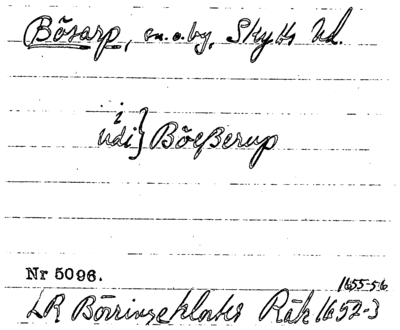 Bösarp, sn. o. by, Skytts hd.
i
udi } Böeßerup
Nr 5096.
1655-56
LR Börringekloster Räk 1652-3